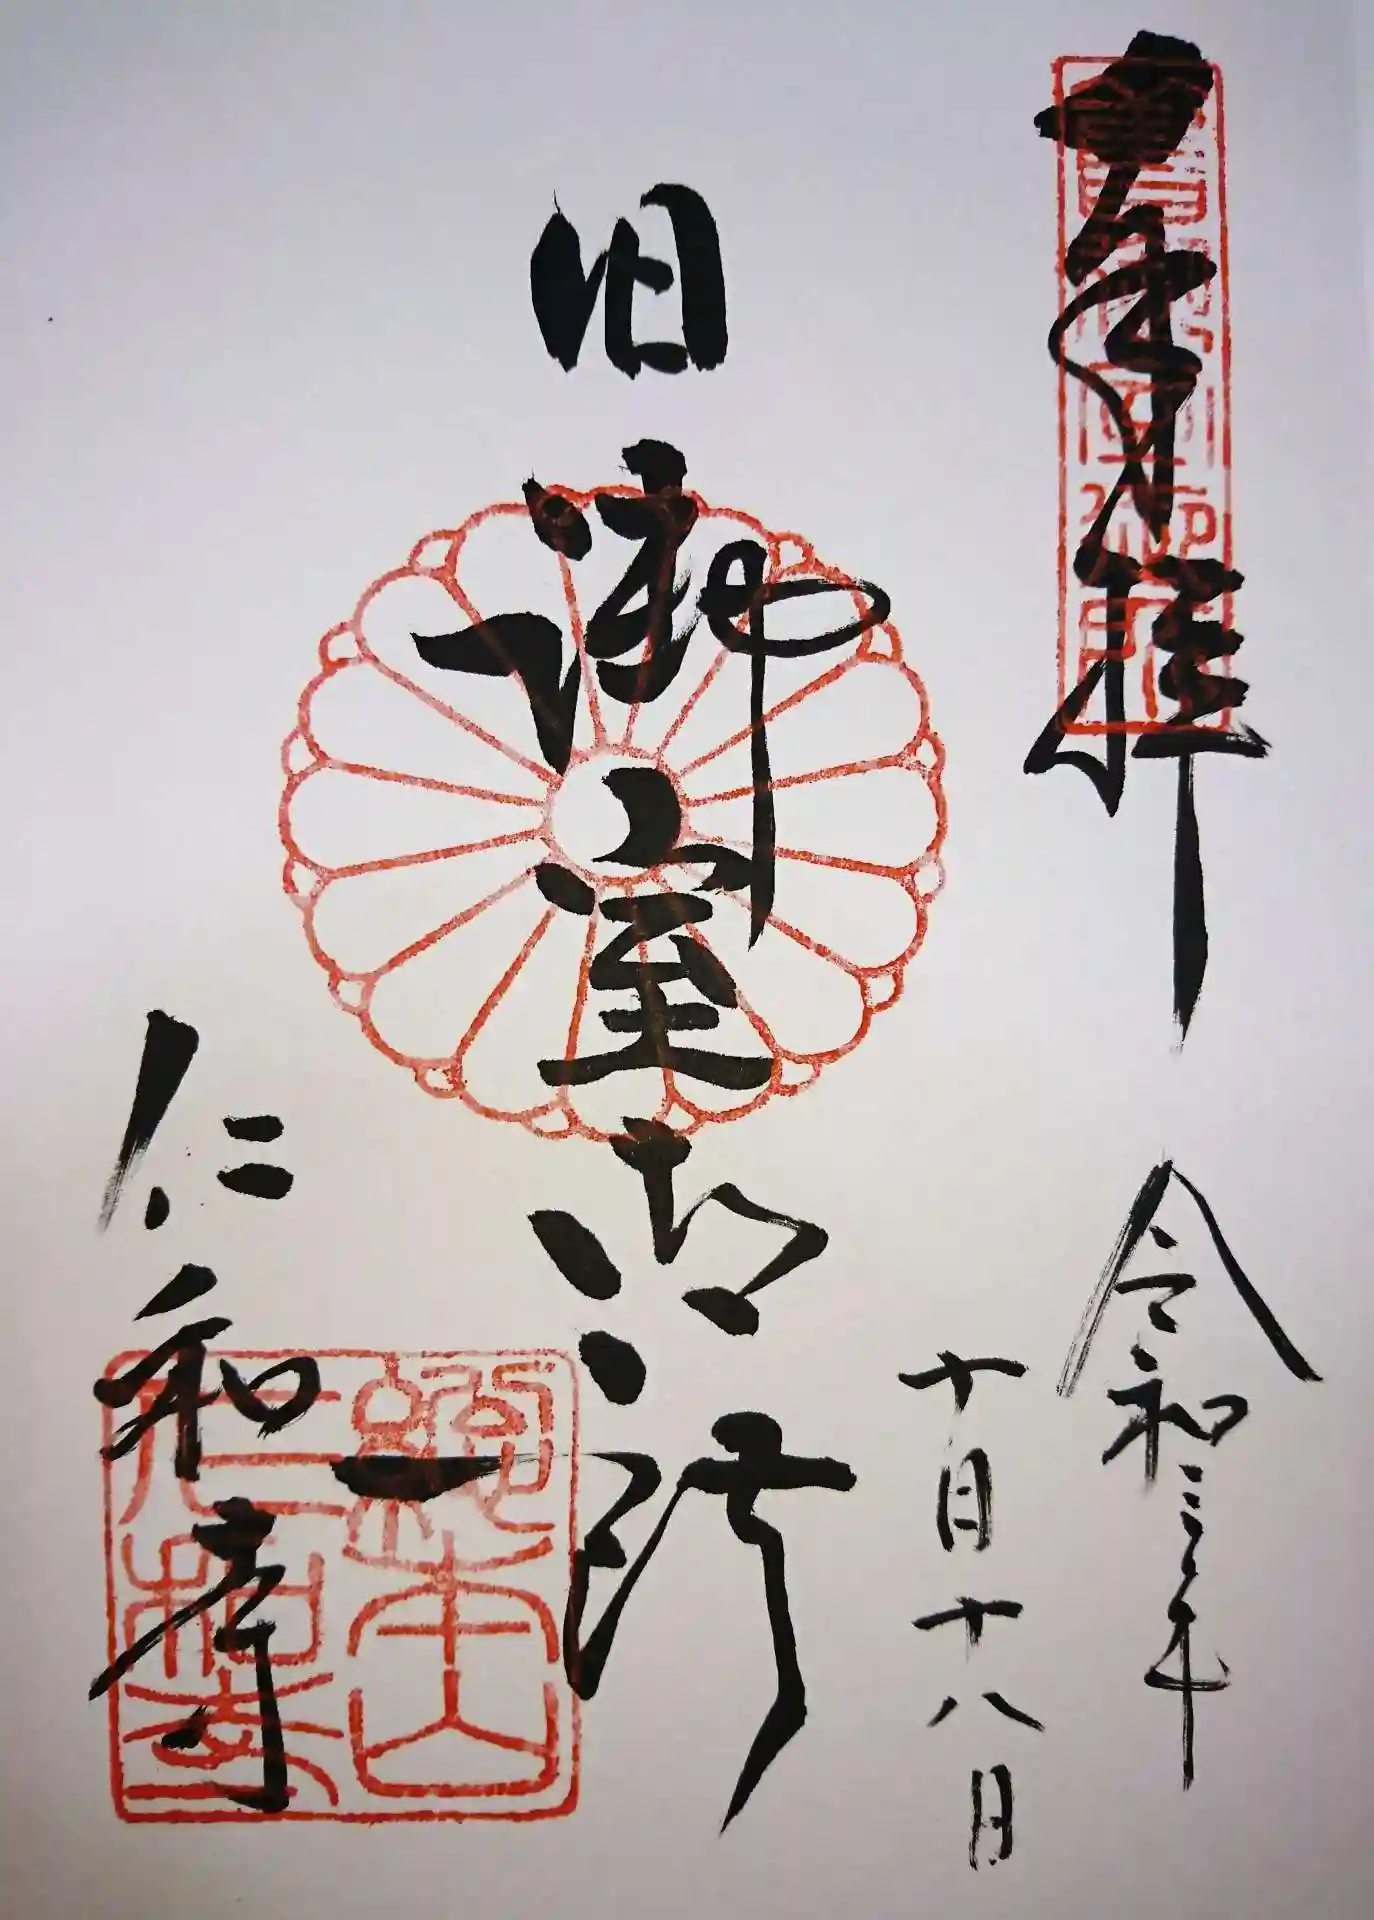 奉拝
令和三年
十月十八日
旧御室御所
仁和寺
総本山
仁和寺